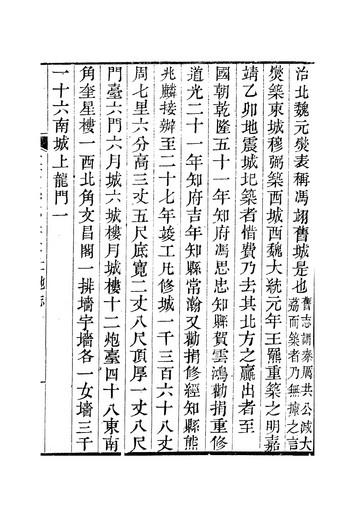 治北魏元燮表稱馮翊舊城是也舊志謂秦厲共公滅大
荔而築者乃無據之言
燮築東城穆弼築西城西魏大統元年王羆重築之明嘉
靖乙卯地震城圮築者惜費乃去其北方之羸出者至
國朝乾隆五十一年知府馮思忠知縣賀雲鴻勸捐重修
道光二十一年知府吉年知縣常瀚又勸捐修經知縣熊
兆麟接辦至二十七年竣工凡修城一千三百六十八丈
周七里六分高三丈五尺底寬二丈八尺頂厚一丈八尺
門臺六門六月城六城樓月城樓十二炮臺四十八東南
角奎星樓一西北角文昌閣一排墻宇墻各一女墻三千
一十六南城上龍門一